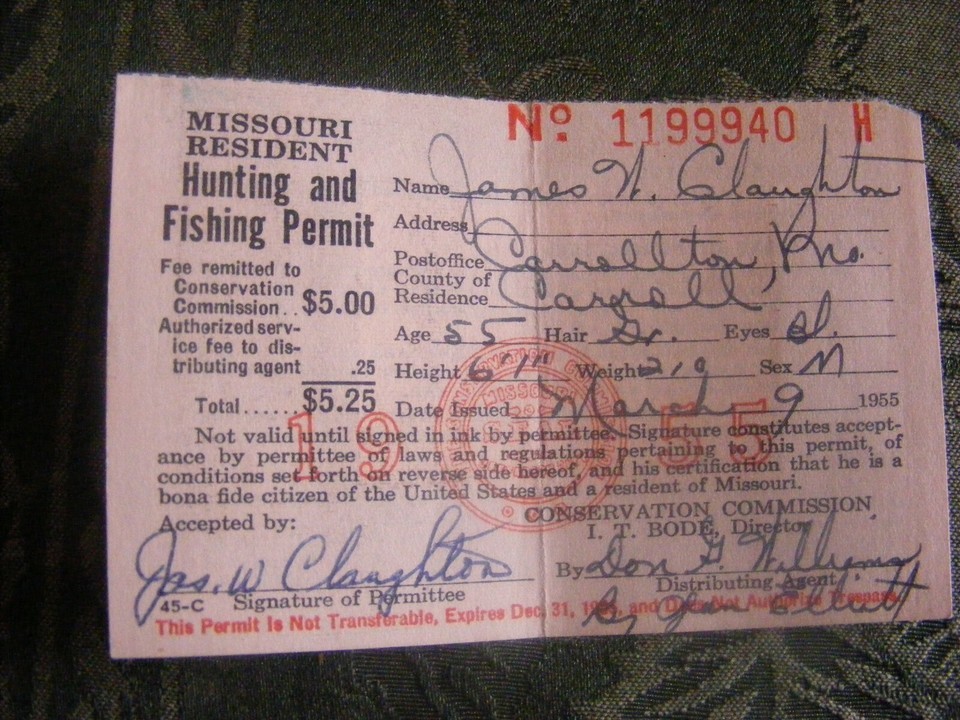 MISSOURI
RESIDENT
Hunting and
Fishing Permit
Fee remitted to
Conservation
Commission.. $5.00
Authorized serv-
ice fee to dis-
tributing agent .25
Total...... $5.25
Nº 1199940 H
Name James W. Claughton
Address
Postoffice Carrollton, Mo.
County of
Residence Carroll
Age 55 Hair Gr. Eyes Bl.
Height 6'1" Weight 210 Sex M
Date Issued March 9 1955
1955
Not valid until signed in ink by permittee. Signature constitutes accept-
ance by permittee of laws and regulations pertaining to this permit, of
conditions set forth on reverse side hereof, and his certification that he is a
bona fide citizen of the United States and a resident of Missouri.
CONSERVATION COMMISSION
I. T. BODE, Director
Accepted by:
Jas. W Claughton
By Don G. Williams
45-C Signature of Permittee
Distributing Agent
By Elliott
This Permit Is Not Transferable, Expires Dec. 31, 1955, and Does Not Authorize Trespass